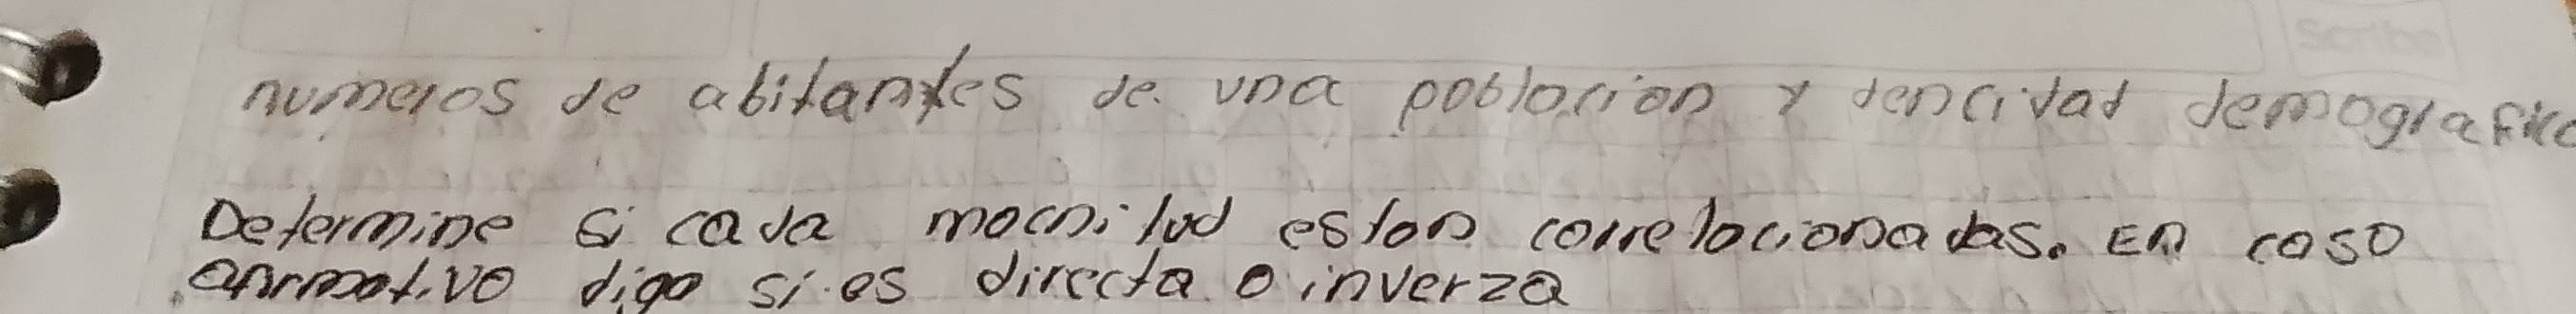 Scribe
numeros de abitantes de una poblacion y dencidad demografica
Determine si cada macnitud estan correlacionadas. En caso
afirmativo diga si es directa o inverza